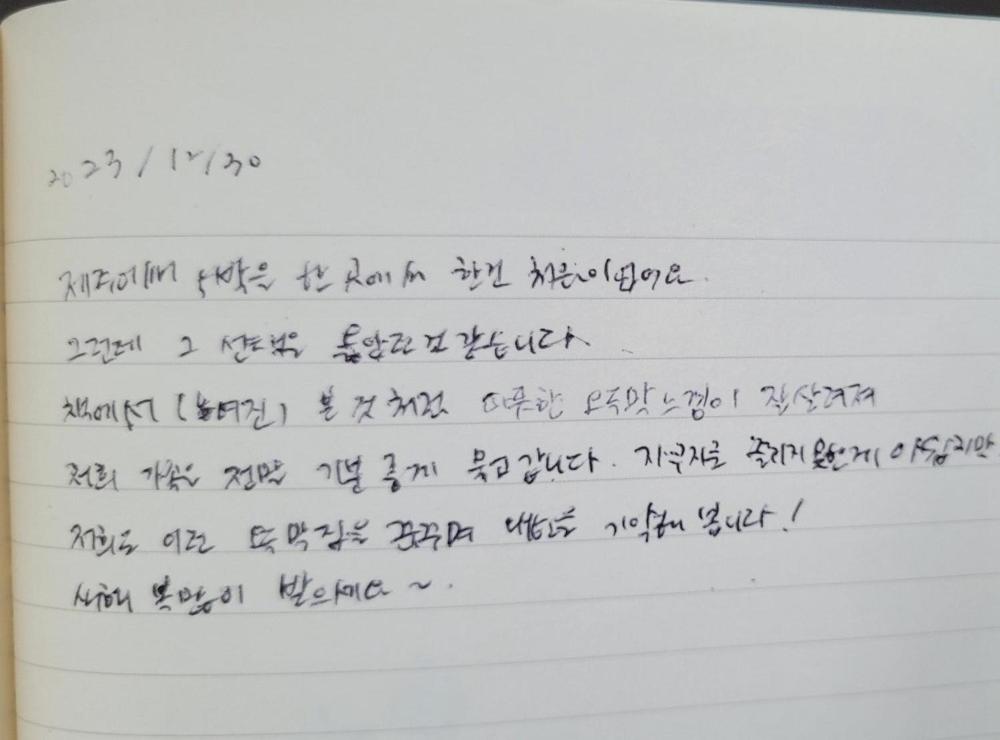 2023/12/30
제주에서 4박을 한 곳에서 한건 처음이었어요.
그런데 그 선택은 옳았던 것 같습니다.
책에서 본 것처럼 따뜻한 오두막 느낌이 잘 살려져
저희 가족은 정말 기분 좋게 묵고 갑니다. 즐기지 못한게 아쉽지만
저희도 이런 오두막집을 꿈꾸며 기억해 봅니다!
새해 복많이 받으세요~.